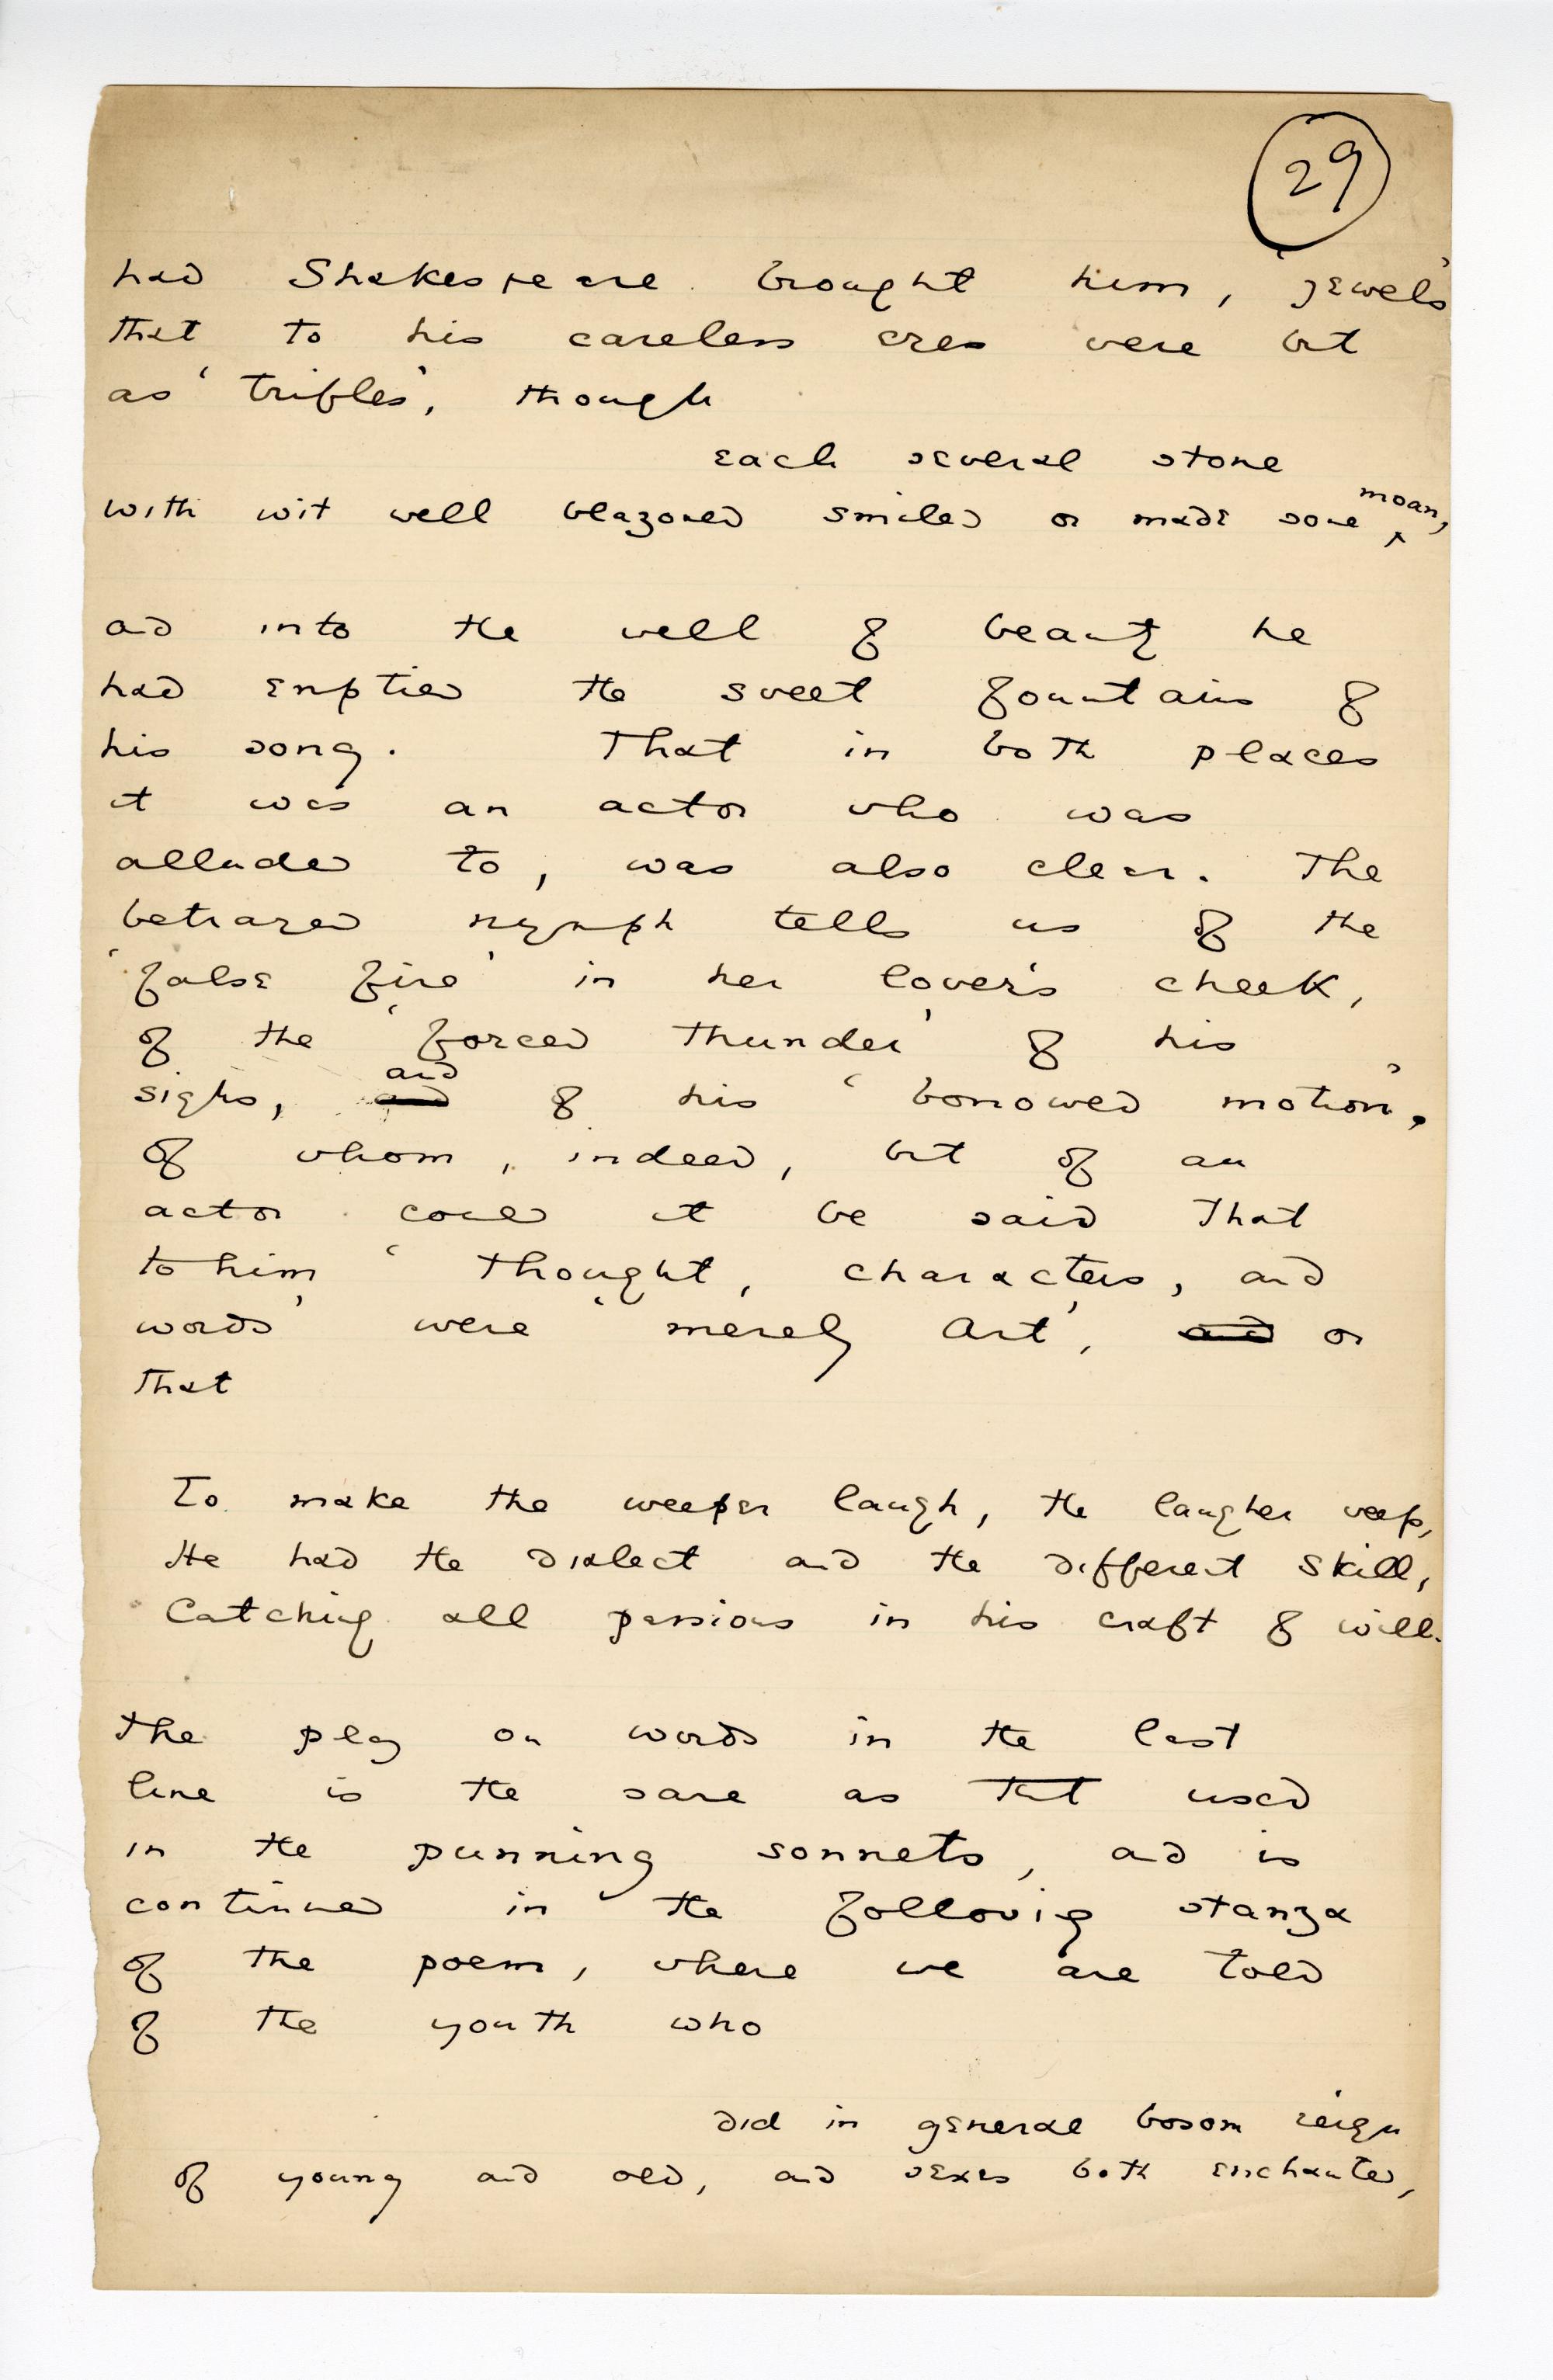 29
had Shakespeare brought him, 'jewels'
that to his careless eyes were but
as 'trifles', though
each several stone
with wit well blazoned smiled or made some moan,
and into the well of beauty he
had emptied the sweet fountain of
his song. That in both places
it was an actor who was
alluded to, was also clear. The
betrayed nymph tells us of the
'false fire' in her lover's cheek,
of the 'forced thunder' of his
sighs, and and of his 'borrowed motion',
of whom, indeed, but of an
actor could it be said that
to him 'thought, characters, and
words' were 'merely Art', and or
that
To make the weeper laugh, the laugher weep,
He had the dialect and the different skill,
Catching all passions in his craft of will.
The play on words in the last
line is the same as that used
in the punning sonnets, and is
continued in the following stanza
of the poem, where we are told
of the youth who
did in general bosom reign
of young and old, and sexes both enchanted,